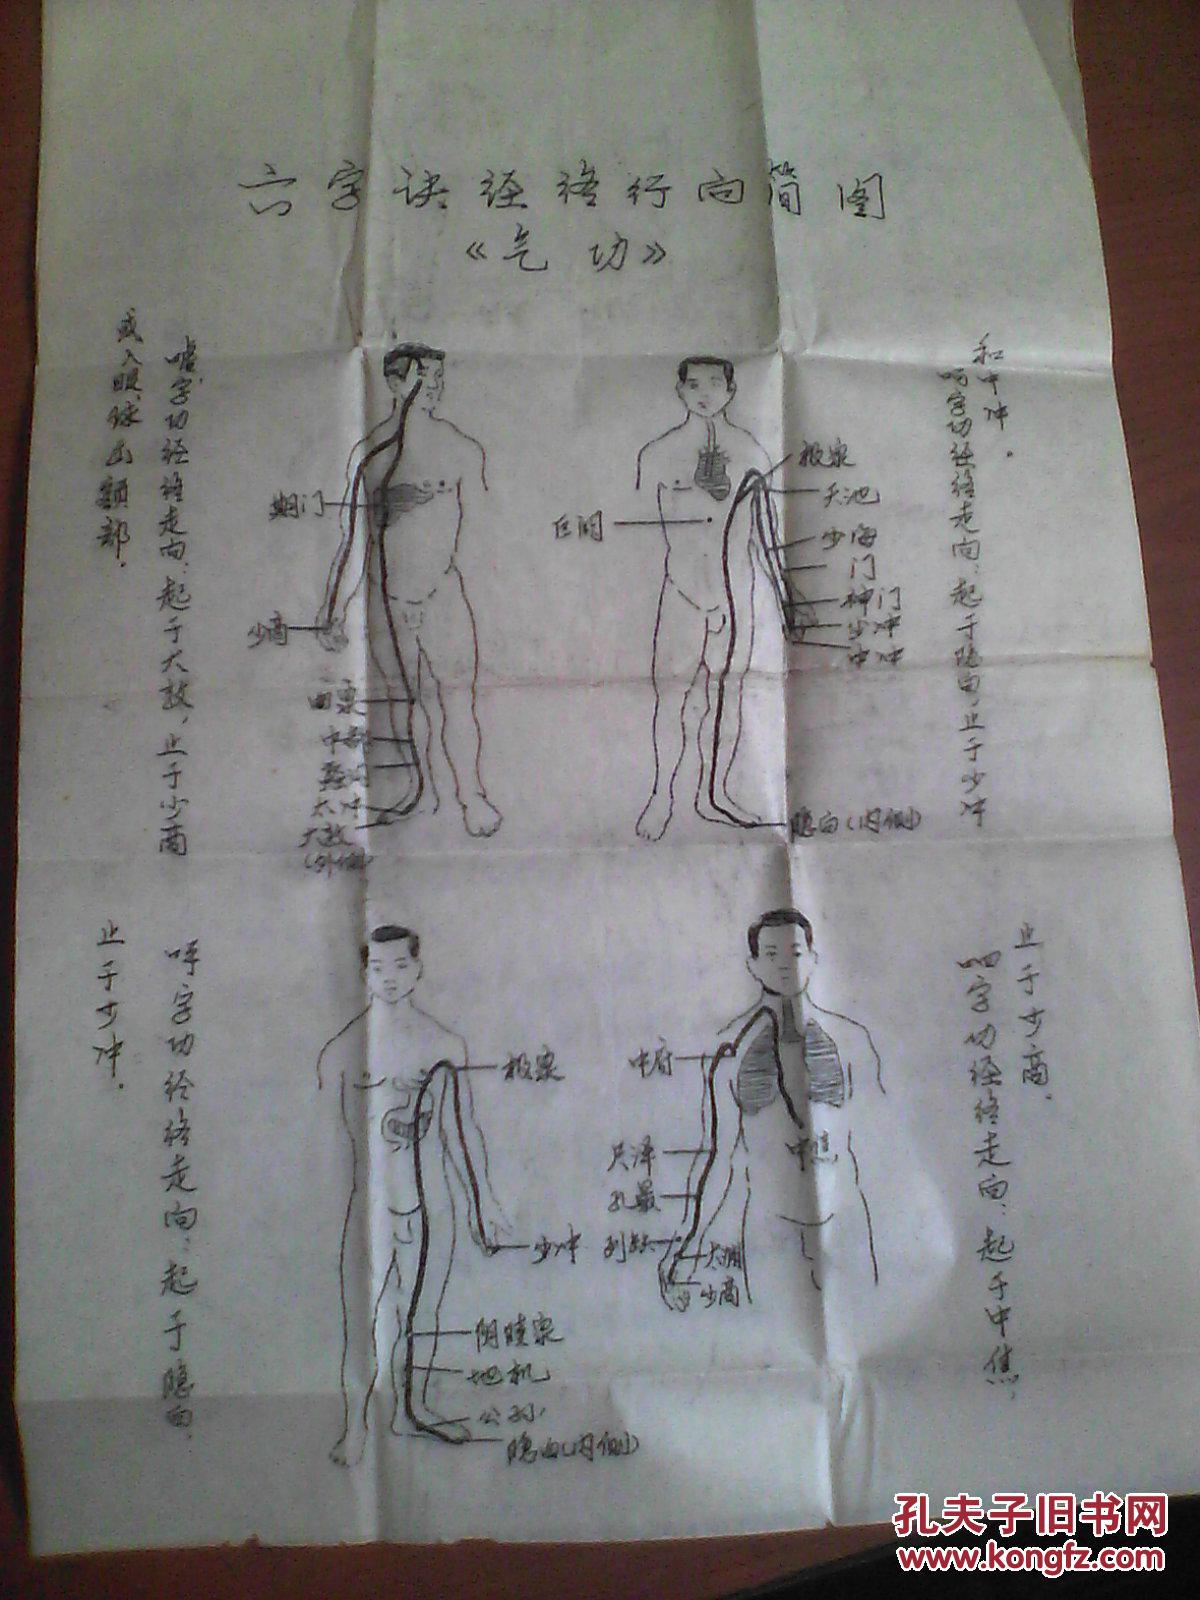 六字诀经络行向简图
《气功》
嘘字功经络走向:起于大敦,止于少商
或入眼球出额部.
期门
少商
曲泉
中都
蠡沟
太冲
大敦
(外侧)
呵字功经络走向:起于隐白,止于少冲
和中冲.
极泉
天池
巨阙
少海
门
神门
少冲
中冲
隐白(内侧)
呼字功经络走向:起于隐白,
止于少冲.
极泉
少冲
阴陵泉
地机
公孙
隐白(内侧)
呬字功经络走向:起于中焦,
止于少商.
中府
中焦
尺泽
孔最
列缺
太渊
少商
孔夫子旧书网
www.kongfz.com